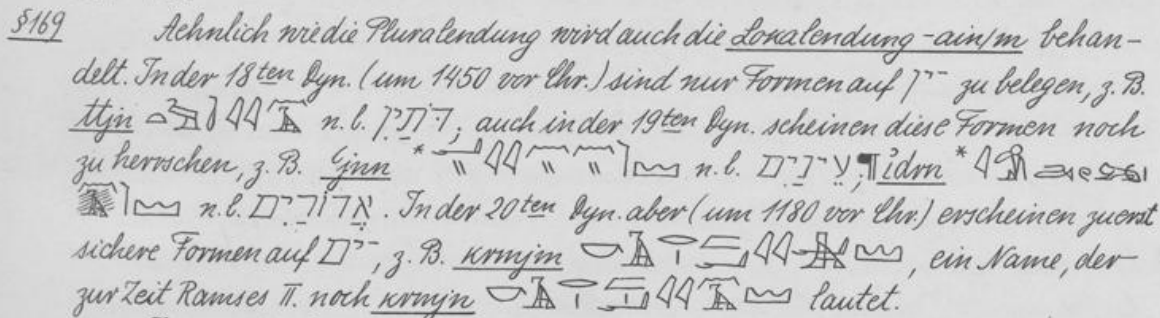 §169 Aehnlich wie die Pluralendung wird auch die Lokalendung -ain/m behan-
delt. In der 18ten Dyn. (um 1450 vor Chr.) sind nur Formen auf ־ַיִן zu belegen, z. B.
ttjn n. l. דֹּתַיִן; auch in der 19ten Dyn. scheinen diese Formen noch
zu herrschen, z. B. * n. l. עֵינַיִם, * 
n. l. אֲדוֹרַיִם. In der 20ten Dyn. aber (um 1180 vor Chr.) erscheinen zuerst
sichere Formen auf ־ַיִם, z. B. krmjm , ein Name, der
zur Zeit Ramses II. noch krmjn lautet.